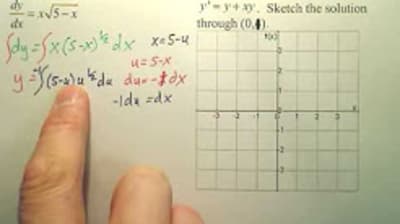 dy/dx = x√5−x
∫dy = ∫x(5-x)^½ dx   x=5-u
u=5-x
y = -∫(5-u)u^½ du   du=-1dx
-1du = dx
y' = y + xy. Sketch the solution
through (0,
f(x)
3
2
1
-3 -2 -1 1 2 3
x
-1
-2
-3